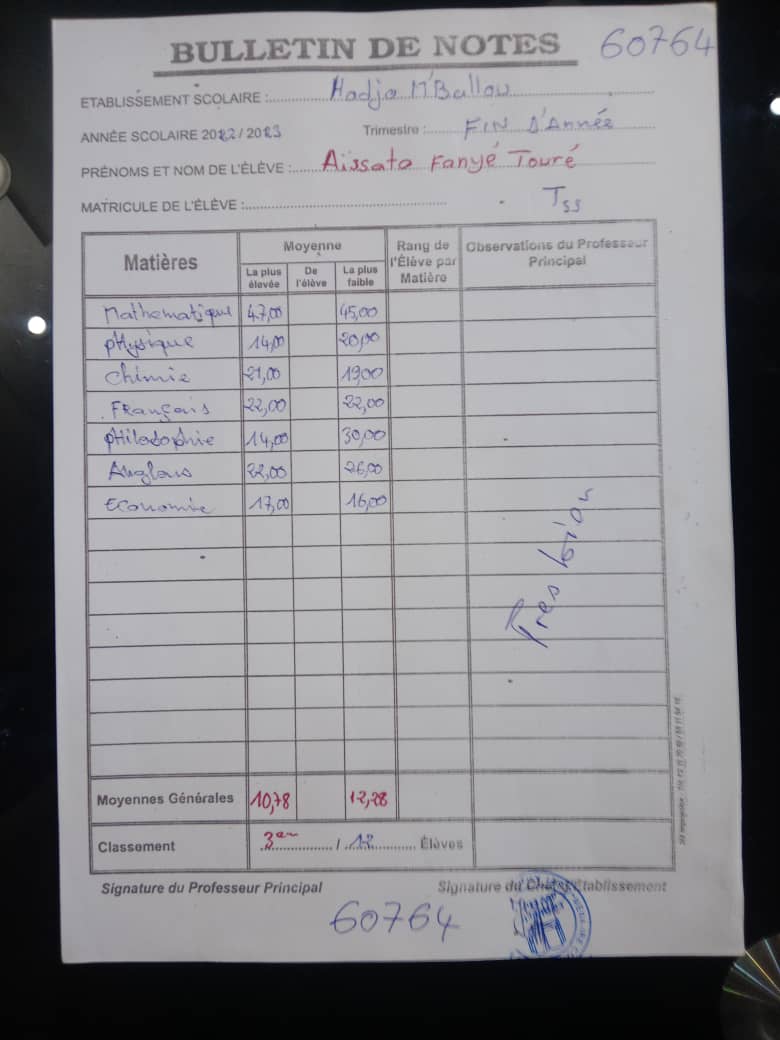 BULLETIN DE NOTES 60764
ETABLISSEMENT SCOLAIRE : Hadja M'Ballou
ANNÉE SCOLAIRE 2022 / 2023 Trimestre : FIN D'Année
PRÉNOMS ET NOM DE L'ÉLÈVE : Aissata Fanyé Touré
MATRICULE DE L'ÉLÈVE : TSS
Matières Moyenne Rang de l'Élève par Matière Observations du Professeur Principal
La plus élevée De l'élève La plus faible
Mathematique 47,00 45,00
pHysique 14,00 20,00
chimie 21,00 19,00
FRançais 22,00 22,00
pHilosophie 14,00 30,00
Anglais 22,00 26,00
Economie 17,00 16,00
Tres bien
Moyennes Générales 10,78 12,28
Classement 3em / 12 Élèves
Signature du Professeur Principal Signature du Chef d'Établissement
60764